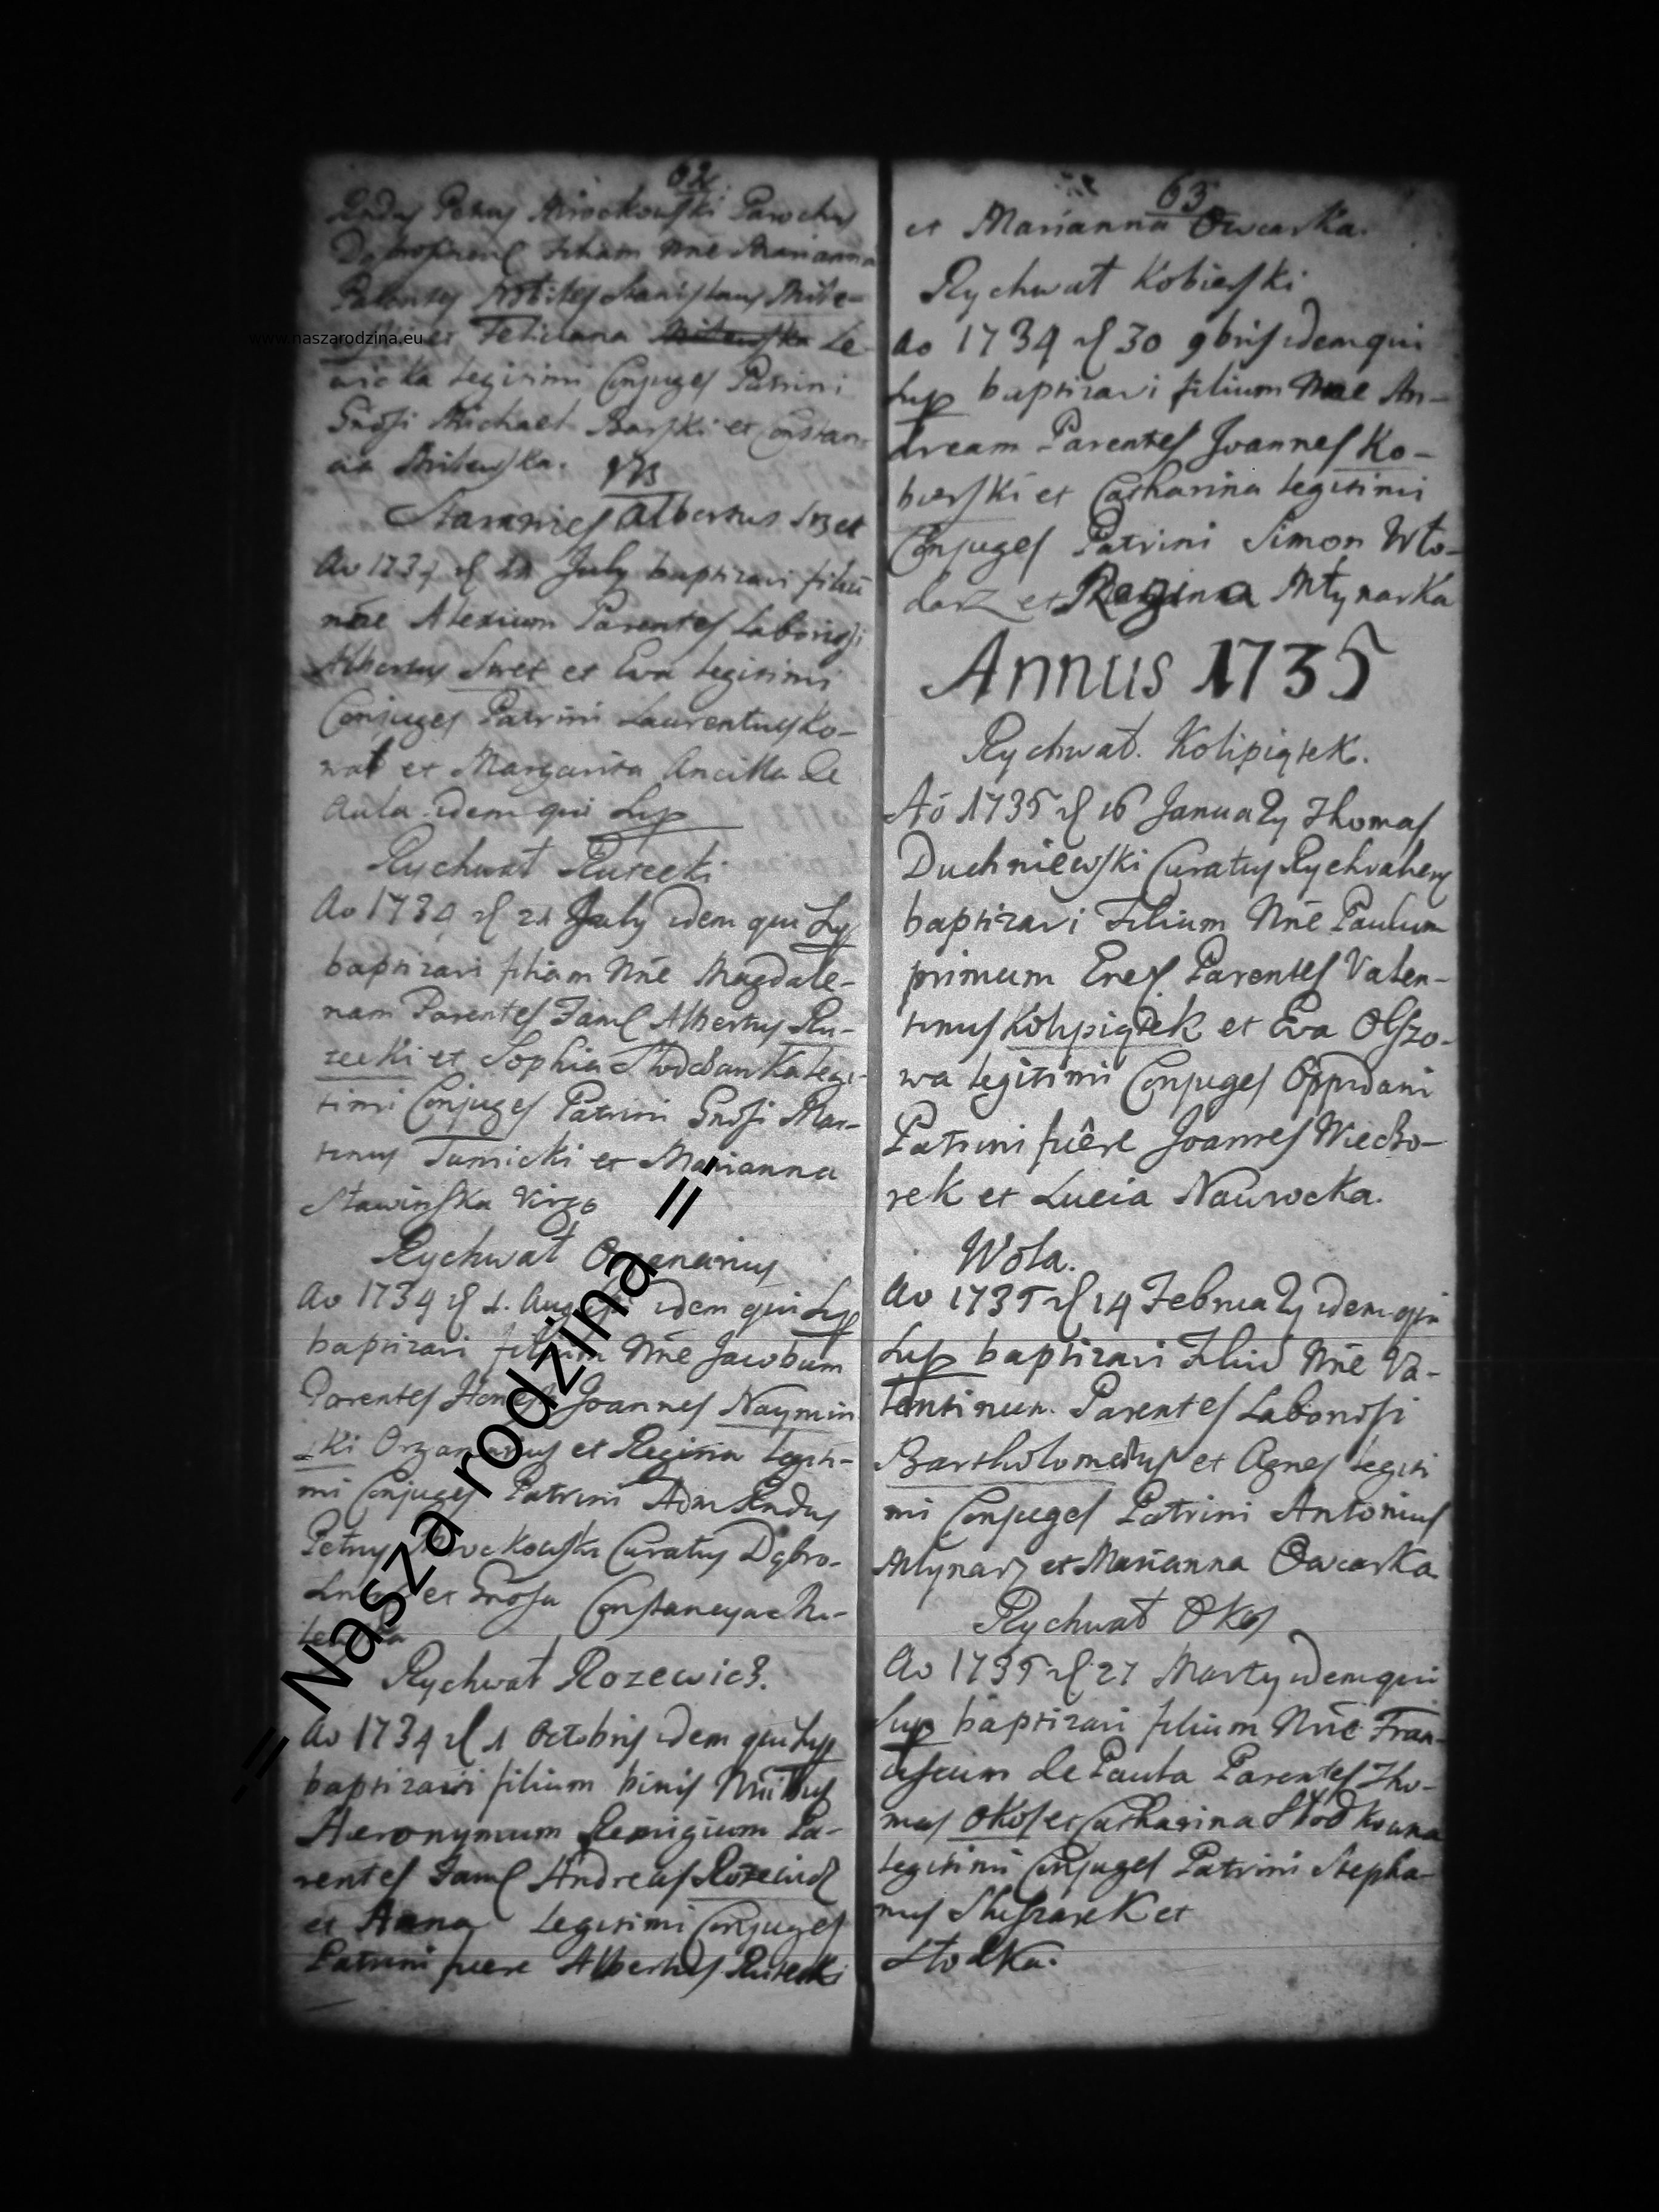 62
Petrus Parochus
filiam Nne Mariannā
Parentes Nobiles Stanislaus Mile-
et Feliciana Le-
wicka legitimi Conjuges Patrini
Gñosi Michael Barski et Constan-
cia Milewska.
Albertus
Ao 1734 July baptizavi filiū
nõe Alexium Parentes Laboriosi
Albertus et Eva legitimi
Conjuges Patrini Laurentius Ko-
wal et Margarita Ancilla de
Aula idem qui Sup
Rychwał Rurecki
Ao 1734 d 21 July idem qui Sup
baptizavi filiam Nne Magdale-
nam Parentes Faml Albertus Ru-
recki et Sophia Legi-
timi Conjuges Patrini Gñosi Mar-
tinus Tumicki et Marianna
Stawinska Virgo
Rychwał Organarius
Ao 1734 d 1. Augusti idem qui Sup
baptizavi filium Nne Jacobum
Parentes Honesti Joannes Naymin
ski Organarius et Regina Legiti-
mi Conjuges Patrini Adm Rndus
Petrus Curatus Dąbro-
et Gñosa Constancya Mi-
lewska
Rychwał Rozewicz.
Ao 1734 d 1 Octobris idem qui Sup
baptizavi filium binis Nnibus
Hieronymum Remigium Pa-
rentes Faml Andreas Rozewicz
et Anna Legitimi Conjuges
Patrini fuere Albertus Rurecki
63
et Marianna Owcarka.
Rychwał Kobierski
Ao 1734 d 30 9bris idem qui
Sup baptizavi filium Nne An-
dream Parentes Joannes Ko-
bierski et Catharina legitimi
Conjuges Patrini Simon Wło-
darz et Regina Młynarka
Annus 1735
Rychwał. Kolipiątek.
Aō 1735 d 16 January Thomas
Duchniewski Curatus Rychvaliens
baptizavi Filium Nne Paulum
primum Parentes Valen-
tinus Kolipiątek et Eva Olszo-
wa legitimi Conjuges Oppidani
Patrini fuêre Joannes Wieczo-
rek et Lucia Nawrocka.
Wola.
Ao 1735 d 14 February idem qui
Sup baptizavi Filiū Nne Va-
lentinum Parentes Laboriosi
Bartholomæus et Agnes legiti
mi Conjuges Patrini Antonius
Młynarz et Marianna Owcarka
Rychwał Okos
Ao 1735 d 27 Marty idem qui
Sup baptizavi filium Nne Fran-
ciscum de Paula Parentes Tho-
mas Okos et Catharina
legitimi Conjuges Patrini Stepha-
nus et
Stodka.
-= Nasza rodzina =-
www.naszarodzina.eu